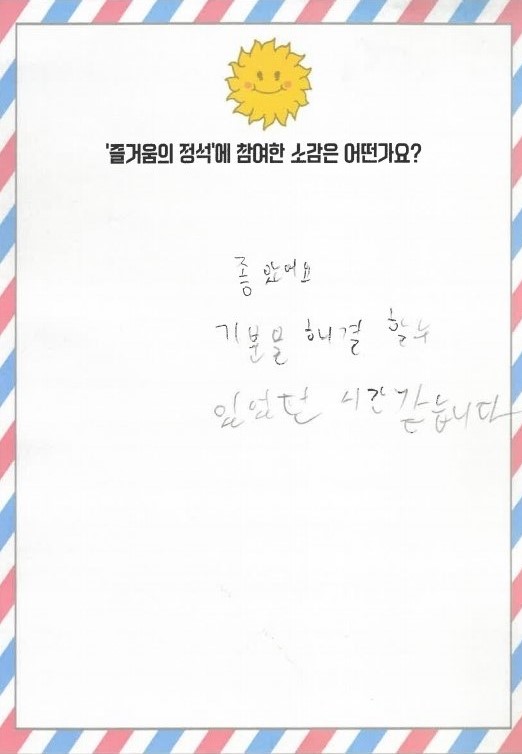 '즐거움의 정석'에 참여한 소감은 어떤가요?
좋았어요
기분을 해결 할 수
있었던 시간같습니다